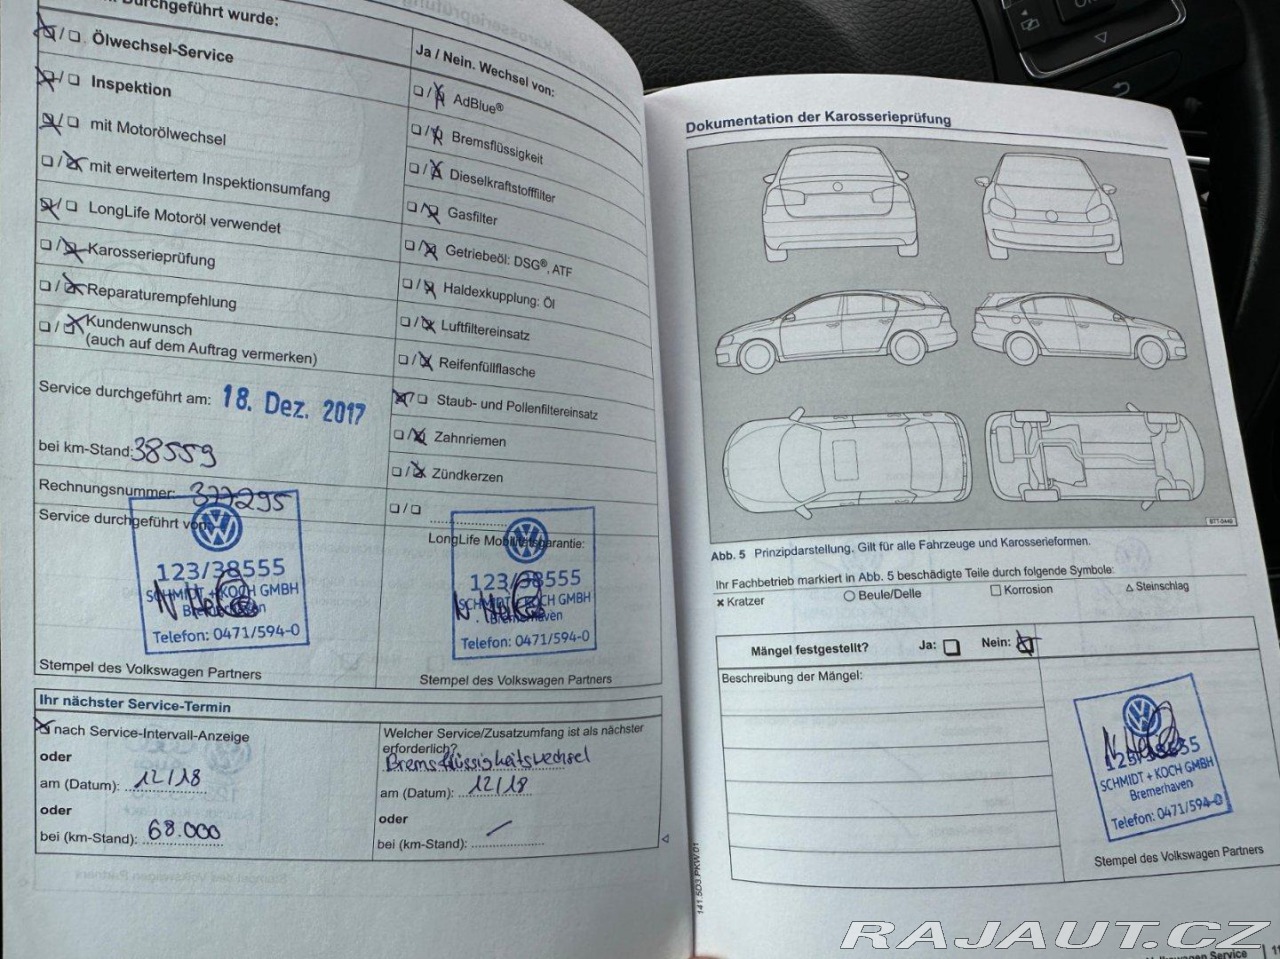 Durchgeführt wurde:
Ölwechsel-Service
Inspektion
mit Motorölwechsel
mit erweitertem Inspektionsumfang
LongLife Motoröl verwendet
Karosserieprüfung
Reparaturempfehlung
Kundenwunsch
(auch auf dem Auftrag vermerken)
Service durchgeführt am: 18. Dez. 2017
bei km-Stand: 38559
Rechnungsnummer: 377295
Service durchgeführt von:
123/38555
SCHMIDT + KOCH GMBH
Bremerhaven
Telefon: 0471/594-0
Stempel des Volkswagen Partners
Ja / Nein. Wechsel von:
AdBlue®
Bremsflüssigkeit
Dieselkraftstofffilter
Gasfilter
Getriebeöl: DSG®, ATF
Haldexkupplung: Öl
Luftfiltereinsatz
Reifenfüllflasche
Staub- und Pollenfiltereinsatz
Zahnriemen
Zündkerzen
LongLife Mobilitätsgarantie:
123/38555
SCHMIDT + KOCH GMBH
Bremerhaven
Telefon: 0471/594-0
Stempel des Volkswagen Partners
Ihr nächster Service-Termin
nach Service-Intervall-Anzeige
oder
am (Datum): 12/18
oder
bei (km-Stand): 68.000
Welcher Service/Zusatzumfang ist als nächster
erforderlich?
Bremsflüssigkeitswechsel
am (Datum): 12/18
oder
bei (km-Stand):
141.5D3.PKW.01
Dokumentation der Karosserieprüfung
BTT-0449
Abb. 5 Prinzipdarstellung. Gilt für alle Fahrzeuge und Karosserieformen.
Ihr Fachbetrieb markiert in Abb. 5 beschädigte Teile durch folgende Symbole:
x Kratzer ○ Beule/Delle □ Korrosion △ Steinschlag
Mängel festgestellt? Ja: Nein:
Beschreibung der Mängel:
SCHMIDT + KOCH GMBH
Bremerhaven
Telefon: 0471/594-0
Stempel des Volkswagen Partners
Volkswagen Service
RAJAUT.CZ